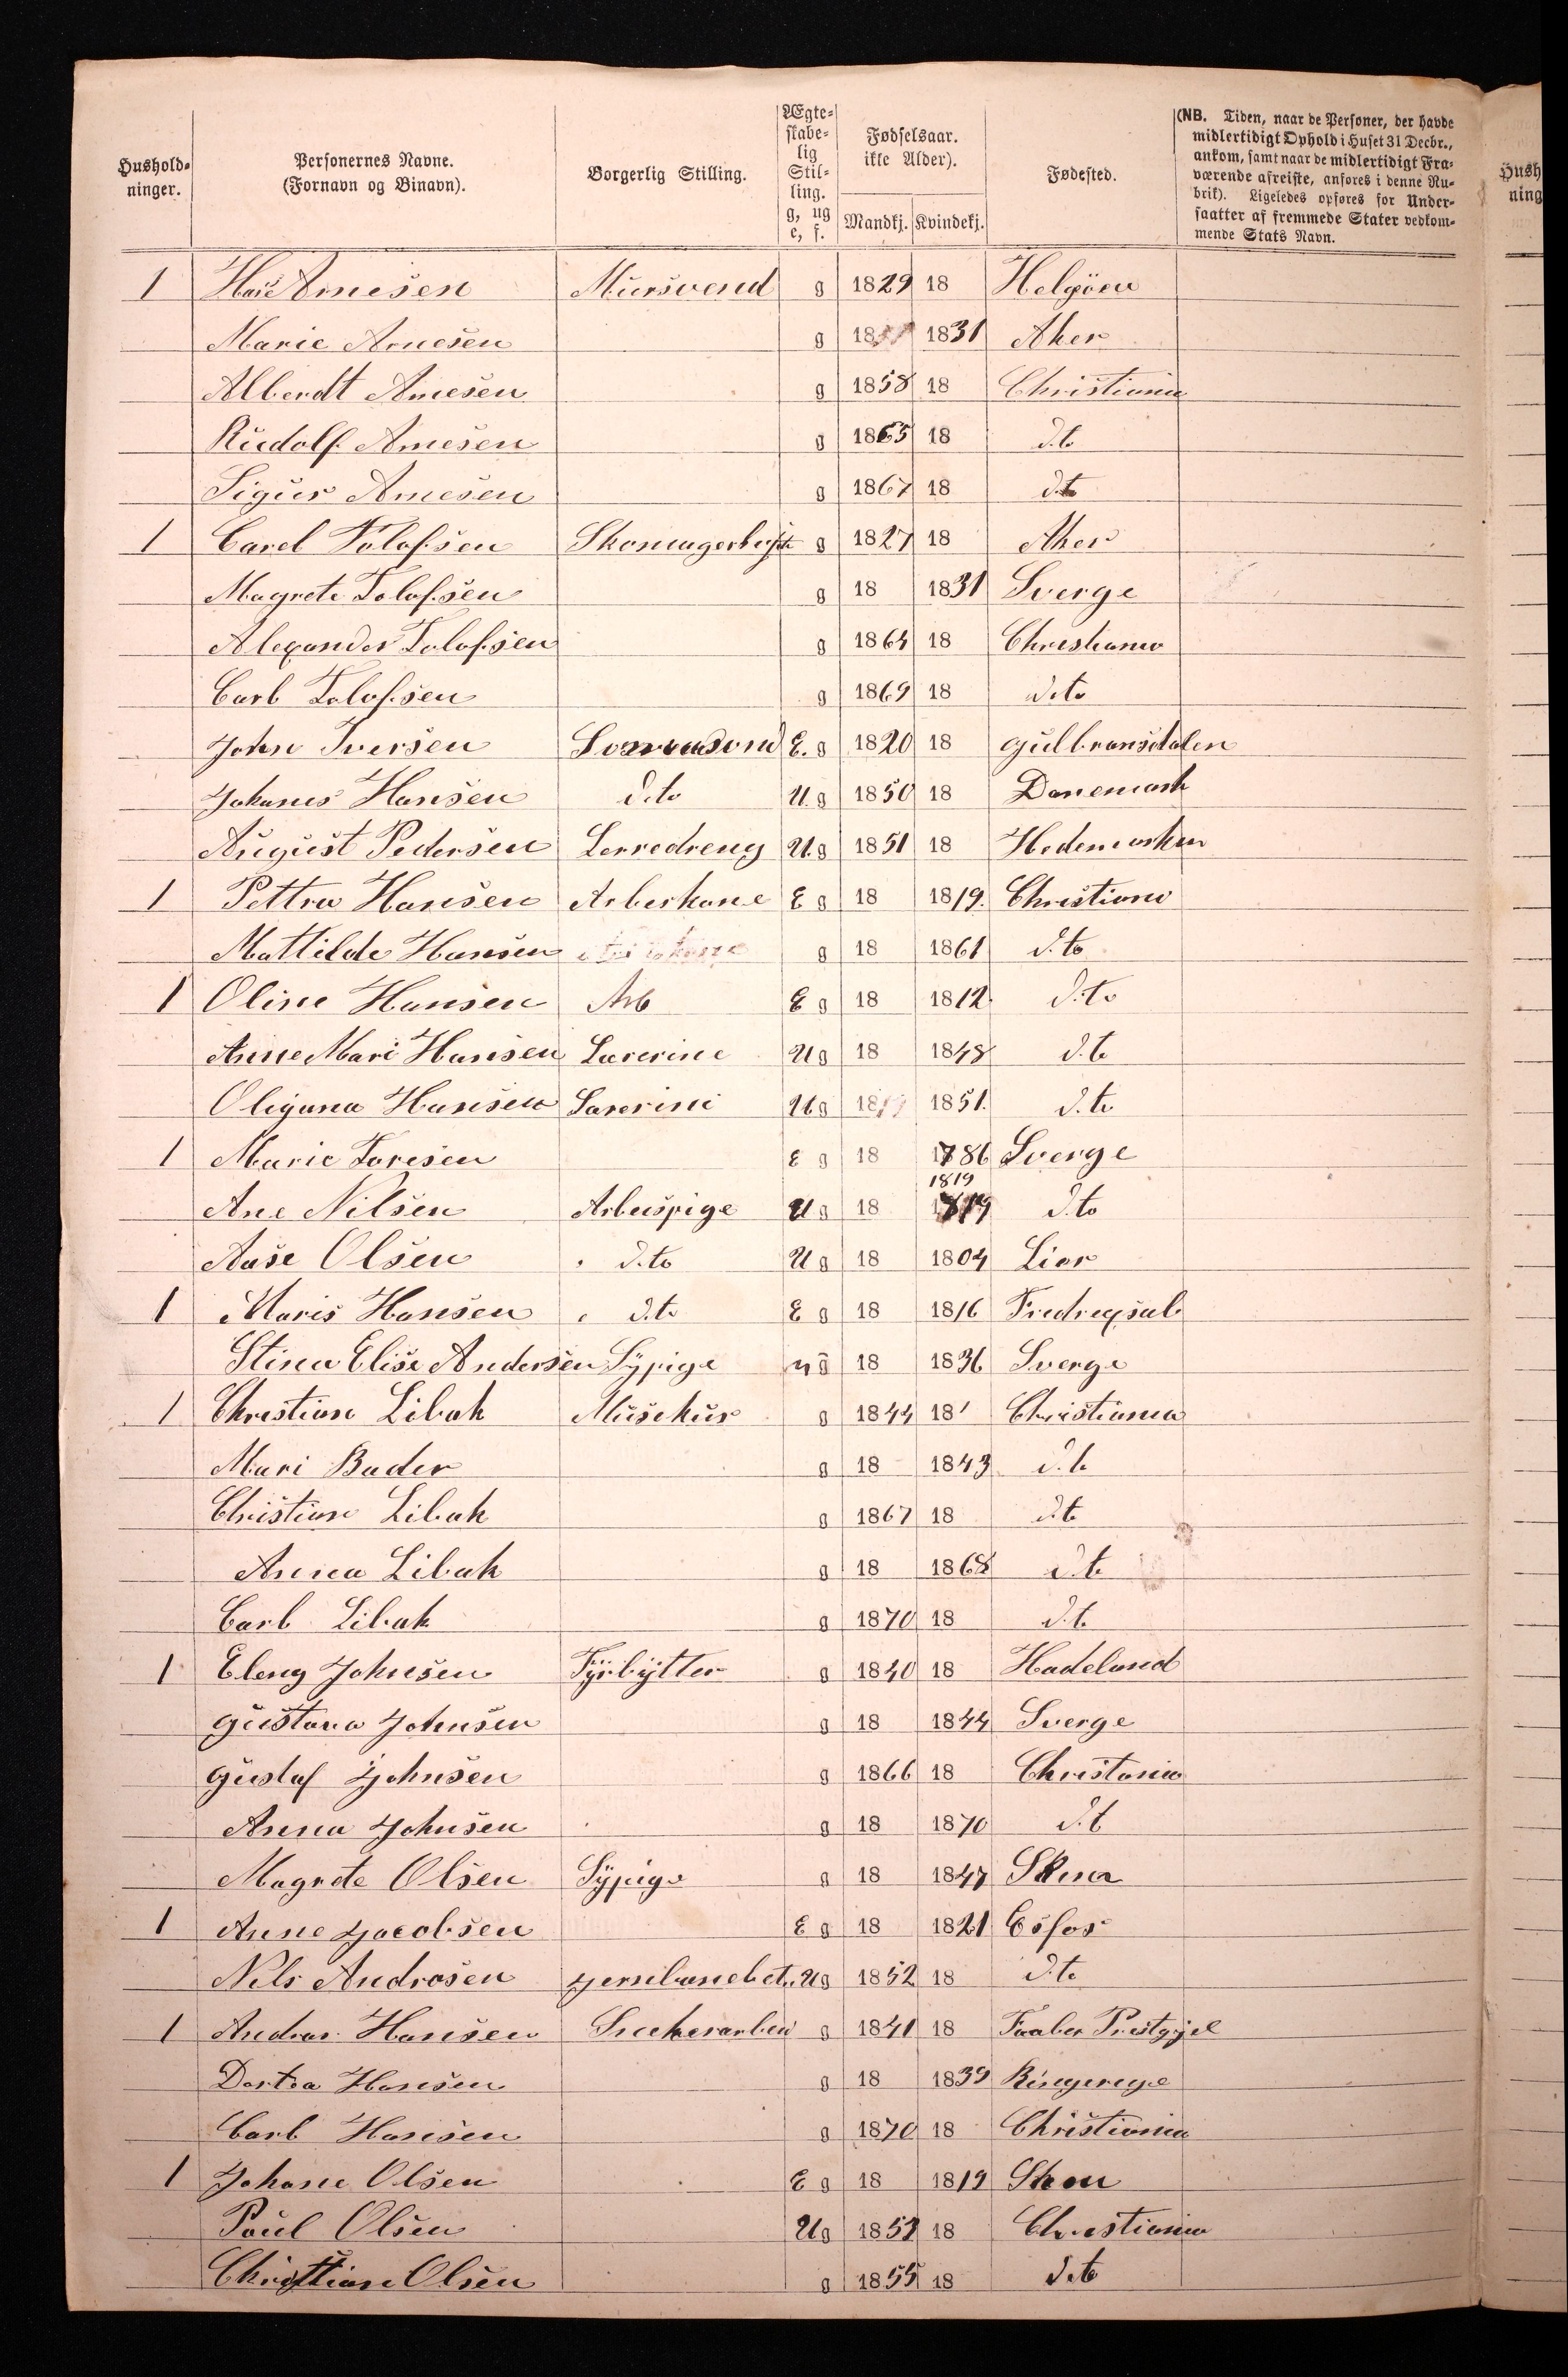 Hushold-
ninger.
Personernes Navne.
(Fornavn og Binavn).
Borgerlig Stilling.
Ægte-
skabe-
lig
Stil-
ling.
g, ug
e, f.
Fødselsaar.
ikke Alder).
Mandkj. Kvindekj.
Fødested.
(NB. Tiden, naar de Personer, der havde
midlertidigt Ophold i Huset 31 Decbr.,
ankom, samt naar de midlertidigt Fra-
værende afreiste, anføres i denne Ru-
brik). Ligeledes opføres for Under-
saatter af fremmede Stater vedkom-
mende Stats Navn.
Hush
ning
1 Arnesen Mursvend g 1829 18 Helgöen
Marie Arnesen g 18 1831 Aker
Alberdt Arnesen g 1858 18 Christiania
Rudolf Arnesen g 1865 18 d.to
Sigur Arnesen g 1867 18 d.to
1 Carel Tolofsen g 1827 18 Aker
Magrete Tolofsen g 18 1831 Sverge
Alexander Tolofsen g 1864 18 Christiania
Carl Tolofsen g 1869 18 d.to
John Iversen E. g 1820 18 Gulbransdalen
Johanes Hansen d.to U. g 1850 18 Danemark
August Pedersen Lerredreng U. g 1851 18 Hedemarken
1 Pettra Hansen Arberkone E g 18 1819. Christiania
Mattilde Hansen g 18 1861 d.to
1 Oline Hansen Arb E g 18 1812 d.to
Anne Mari Hansen Lærerine U g 18 1848 d.to
Oligana Hansen Lærerine U g 18 1851. d.to
1 Marie Toresen E g 18 1786 Sverge
1819
Ane Nilsen Arbeispige U g 18 d.to
Aase Olsen d.to U g 18 1804 Lier
1 Maris Hansen d.to E g 18 1816 Fredregsal
Stina Elise Andersen Sÿpige u g 18 1836 Sverge
1 Christian Libak Musekus g 1844 18 Christiania
Mari Bader g 18 1843 d.to
Christian Libak g 1867 18 d.to
Anna Libak g 18 1868 d.to
Carl Libak g 1870 18 d.to
1 Eleng Johnsen Fÿrbÿtter g 1840 18 Hadeland
Gustava Johnsen g 18 1844 Sverge
Gustaf Johnsen g 1866 18 Christania
Anna Johnsen g 18 1870 d.t
Magrete Olsen Sÿpige g 18 1847
1 Anne Jacobsen E g 18 1821 Esfos
Nils Androsen U g 1852 18 d.to
1 Hansen g 1841 18 Faaber Prestgjel
Dortea Hansen g 18 1839 Ringerige
Carl Hansen g 1870 18 Christiania
1 Johane Olsen E g 18 1819
Paul Olsen U g 18 18 Christiania
Christian Olsen g 1855 18 d.to